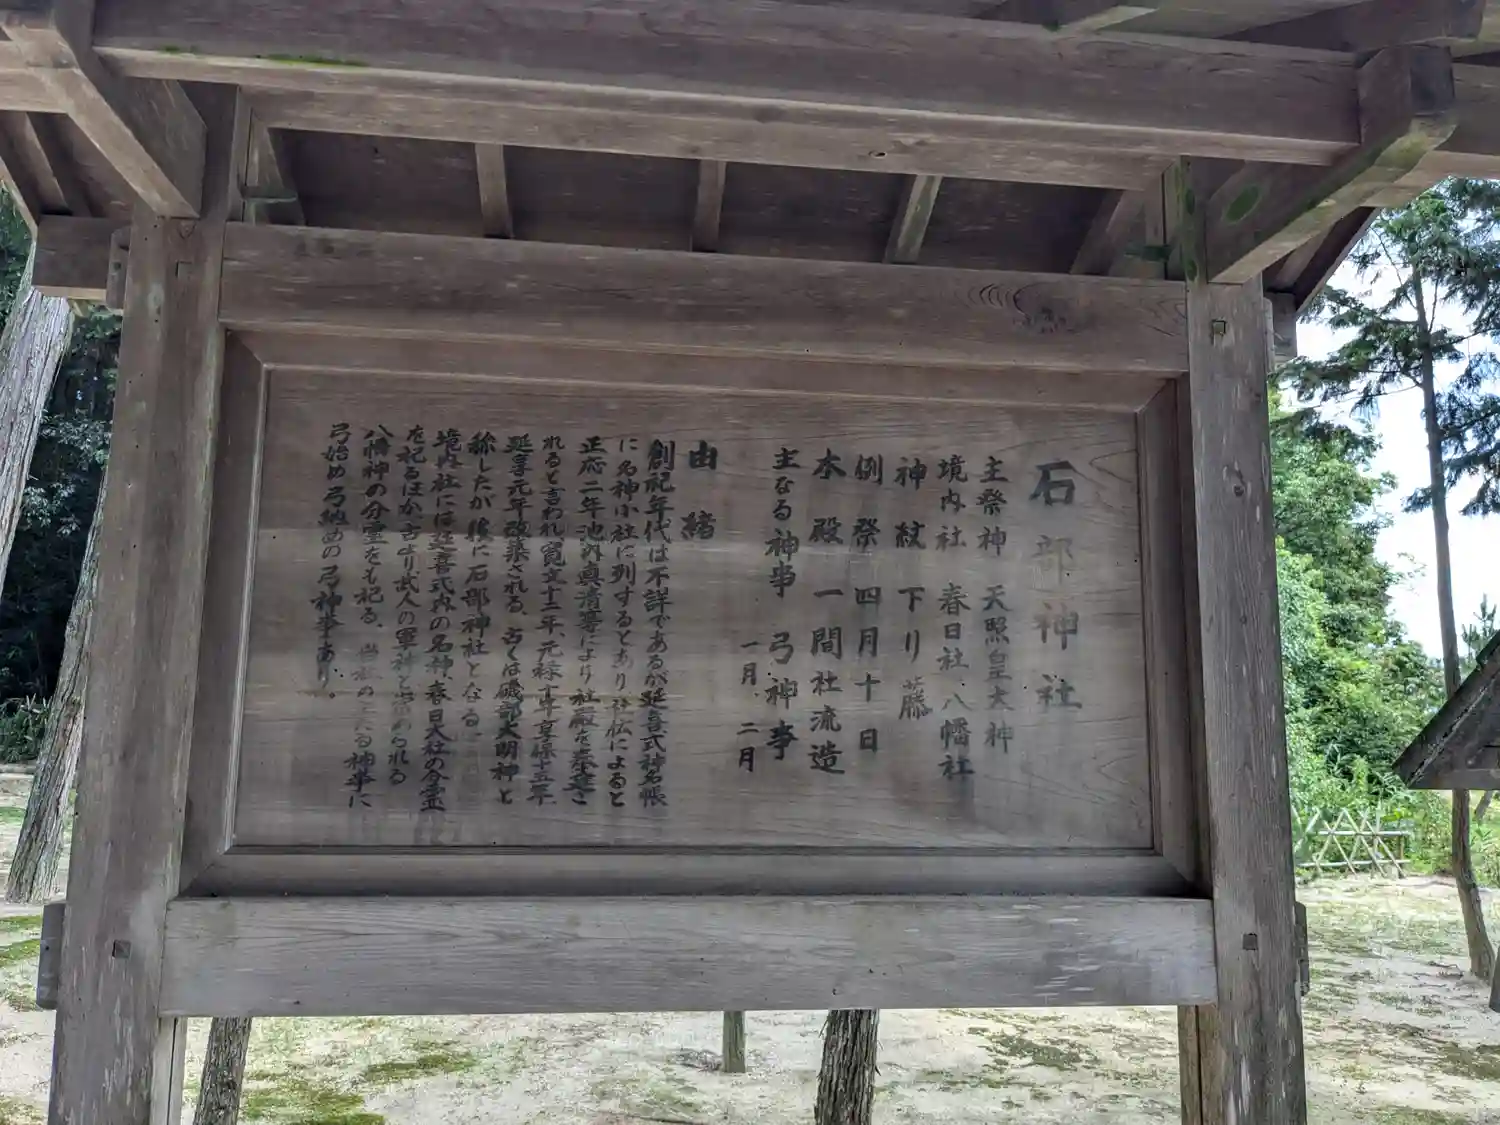 石部神社
主祭神 天照皇大神
境内社 春日社 八幡社
神紋 下り藤
例祭 四月十日
本殿 一間社流造
主なる神事 弓神事 一月、二月
由緒
創祀年代は不詳であるが延喜式神名帳
に名神小社に列するとあり社伝によると
正応二年池内真清等により社殿を奉建さ
れると言われ寛文十二年、元禄十年享保十五年、
延享元年改築される。古くは磯部大明神と
称したが後に石部神社となる。
境内社には延喜式内の名神、春日大社の分霊
を祀るほか古より武人の軍神と崇められる
八幡神の分霊をも祀る。当社の主たる神事に
弓始め弓納めの弓神事あり。